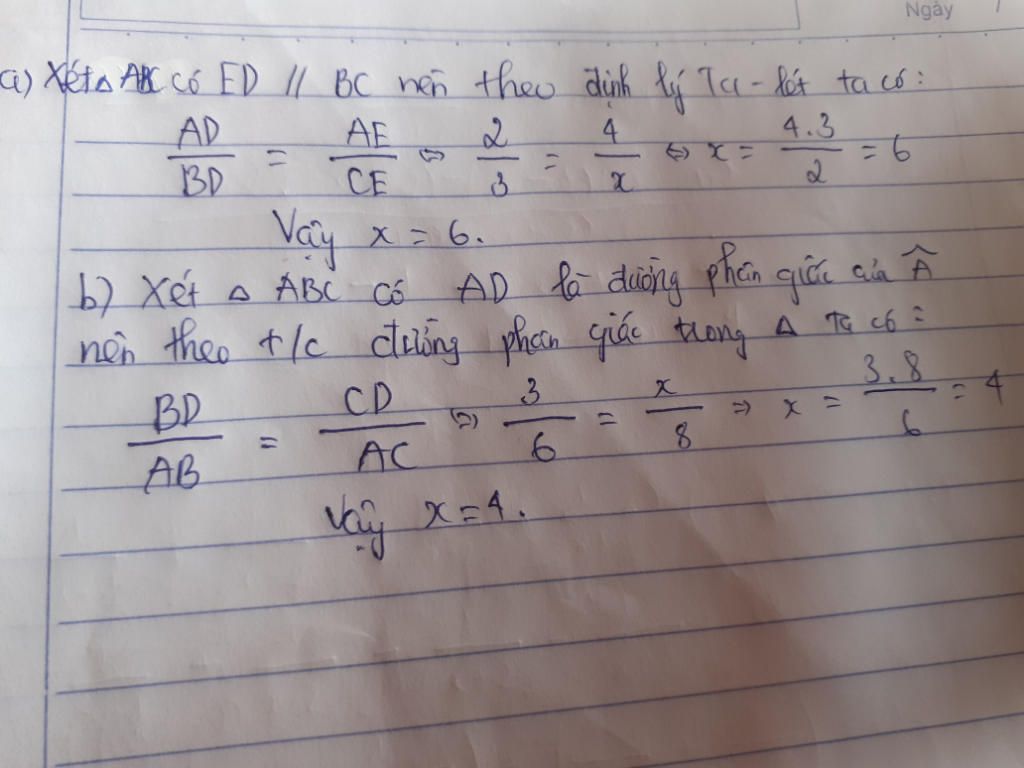 Ngày
a) Xét Δ ABC có ED // BC nên theo định lý Ta-lét ta có:
AD/BD = AE/CE ⇔ 2/3 = 4/x ⇔ x = 4.3/2 = 6
Vậy x = 6.
b) Xét Δ ABC có AD là đường phân giác của Â
nên theo t/c đường phân giác trong Δ Ta có:
BD/AB = CD/AC ⇔ 3/6 = x/8 ⇒ x = 3.8/6 = 4
Vậy x = 4.